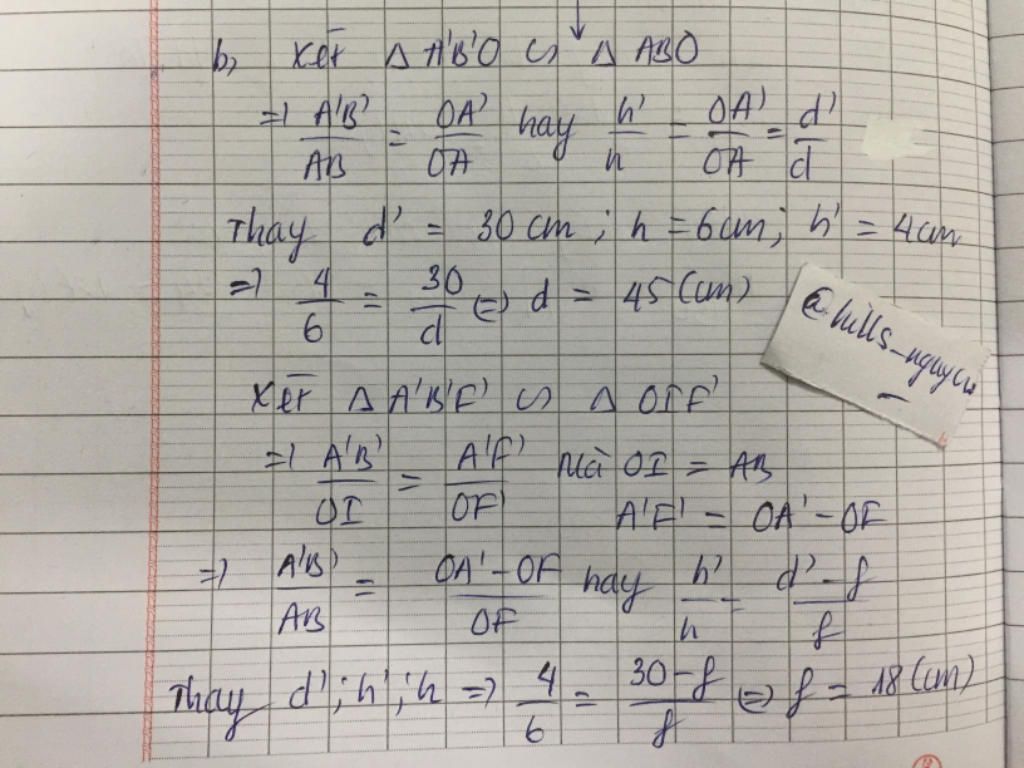 b, Xét Δ A'B'O ∽ Δ ABO
=> A'B'/AB = OA'/OA hay h'/h = OA'/OA = d'/d
Thay d' = 30cm; h = 6cm; h' = 4cm
=> 4/6 = 30/d <=> d = 45 (cm)
@hills_nguyen_
Xét Δ A'B'F' ∽ Δ OIF'
=> A'B'/OI = A'F'/OF' Mà OI = AB
A'F' = OA' - OF
=> A'B'/AB = OA' - OF/OF hay h'/h = d' - f/f
Thay d'; h'; h => 4/6 = 30 - f/f <=> f = 18 (cm)